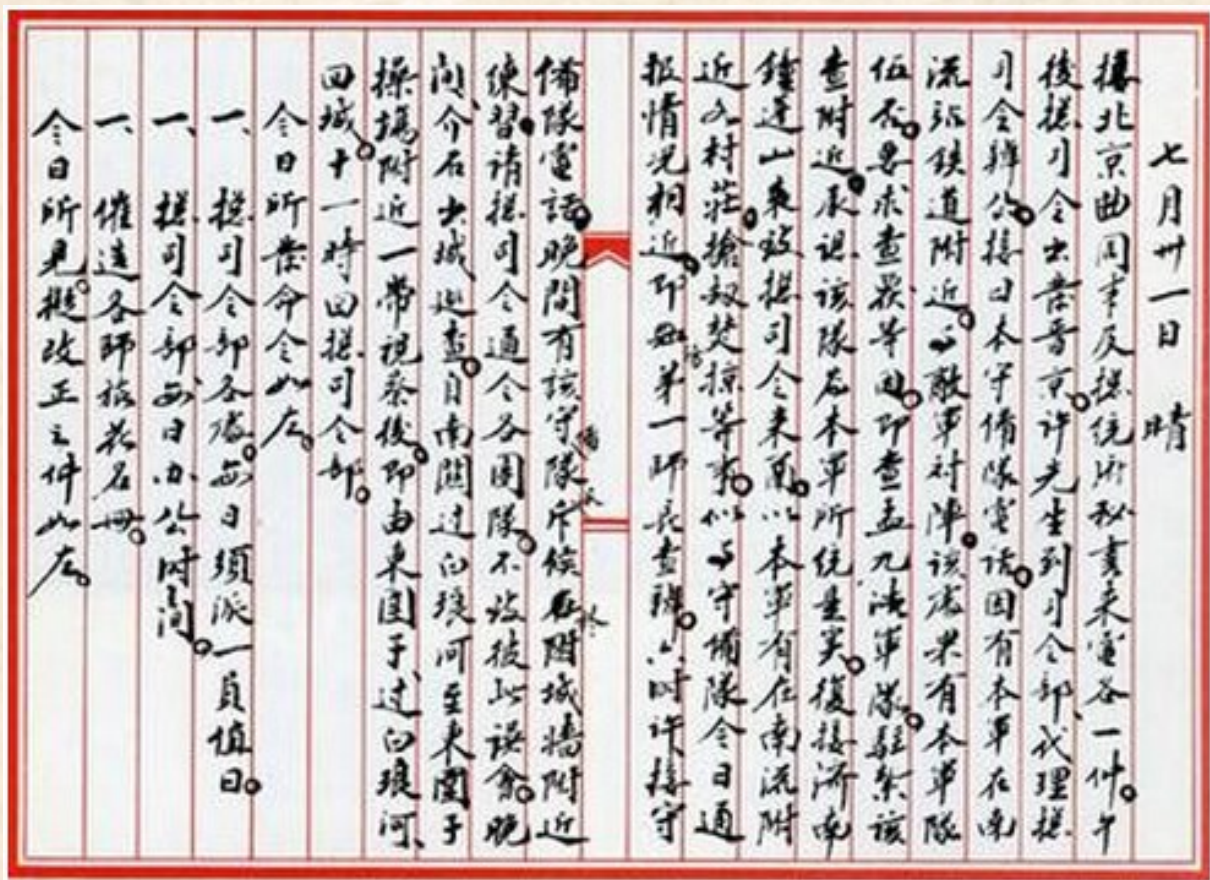 七月卅一日 晴
接北京曲同丰及摠統府秘書来電各一件。午
後摠司令出發晋京。许先生到司令部、代理摠
司令辦公。接日本守備隊電话。因有本軍在南
流站鉄道附近。与敵軍対陣。该處果有本軍隊
伍否。要求查覆等因。即查孟九波軍隊。駐紮该
查附近。承認该隊為本軍所統是实。復接济南
鐘達山来致摠司令来函。以本軍有在南流附
近各村莊。搶劫焚掠等事。似与守備隊今日通
报情况相近。即令第一師長查辦。六時许、接守
備隊電話。晚間有该守備隊斥候在附城墙附近
練習。请摠司令通令各團隊。不致彼此误會。晚
间、介石出城巡查。自南關过白琅河至東圍子
操塲附近一帶视察後。即由東圍子、过白琅河、
回城。十一時回摠司令部。
今日所發命令如左。
一、摠司令部各處。每日须派一員值日。
一、摠司令部每日办公时间。
一、催造各師旅花名冊。
今日所見。擬改正之件如左。